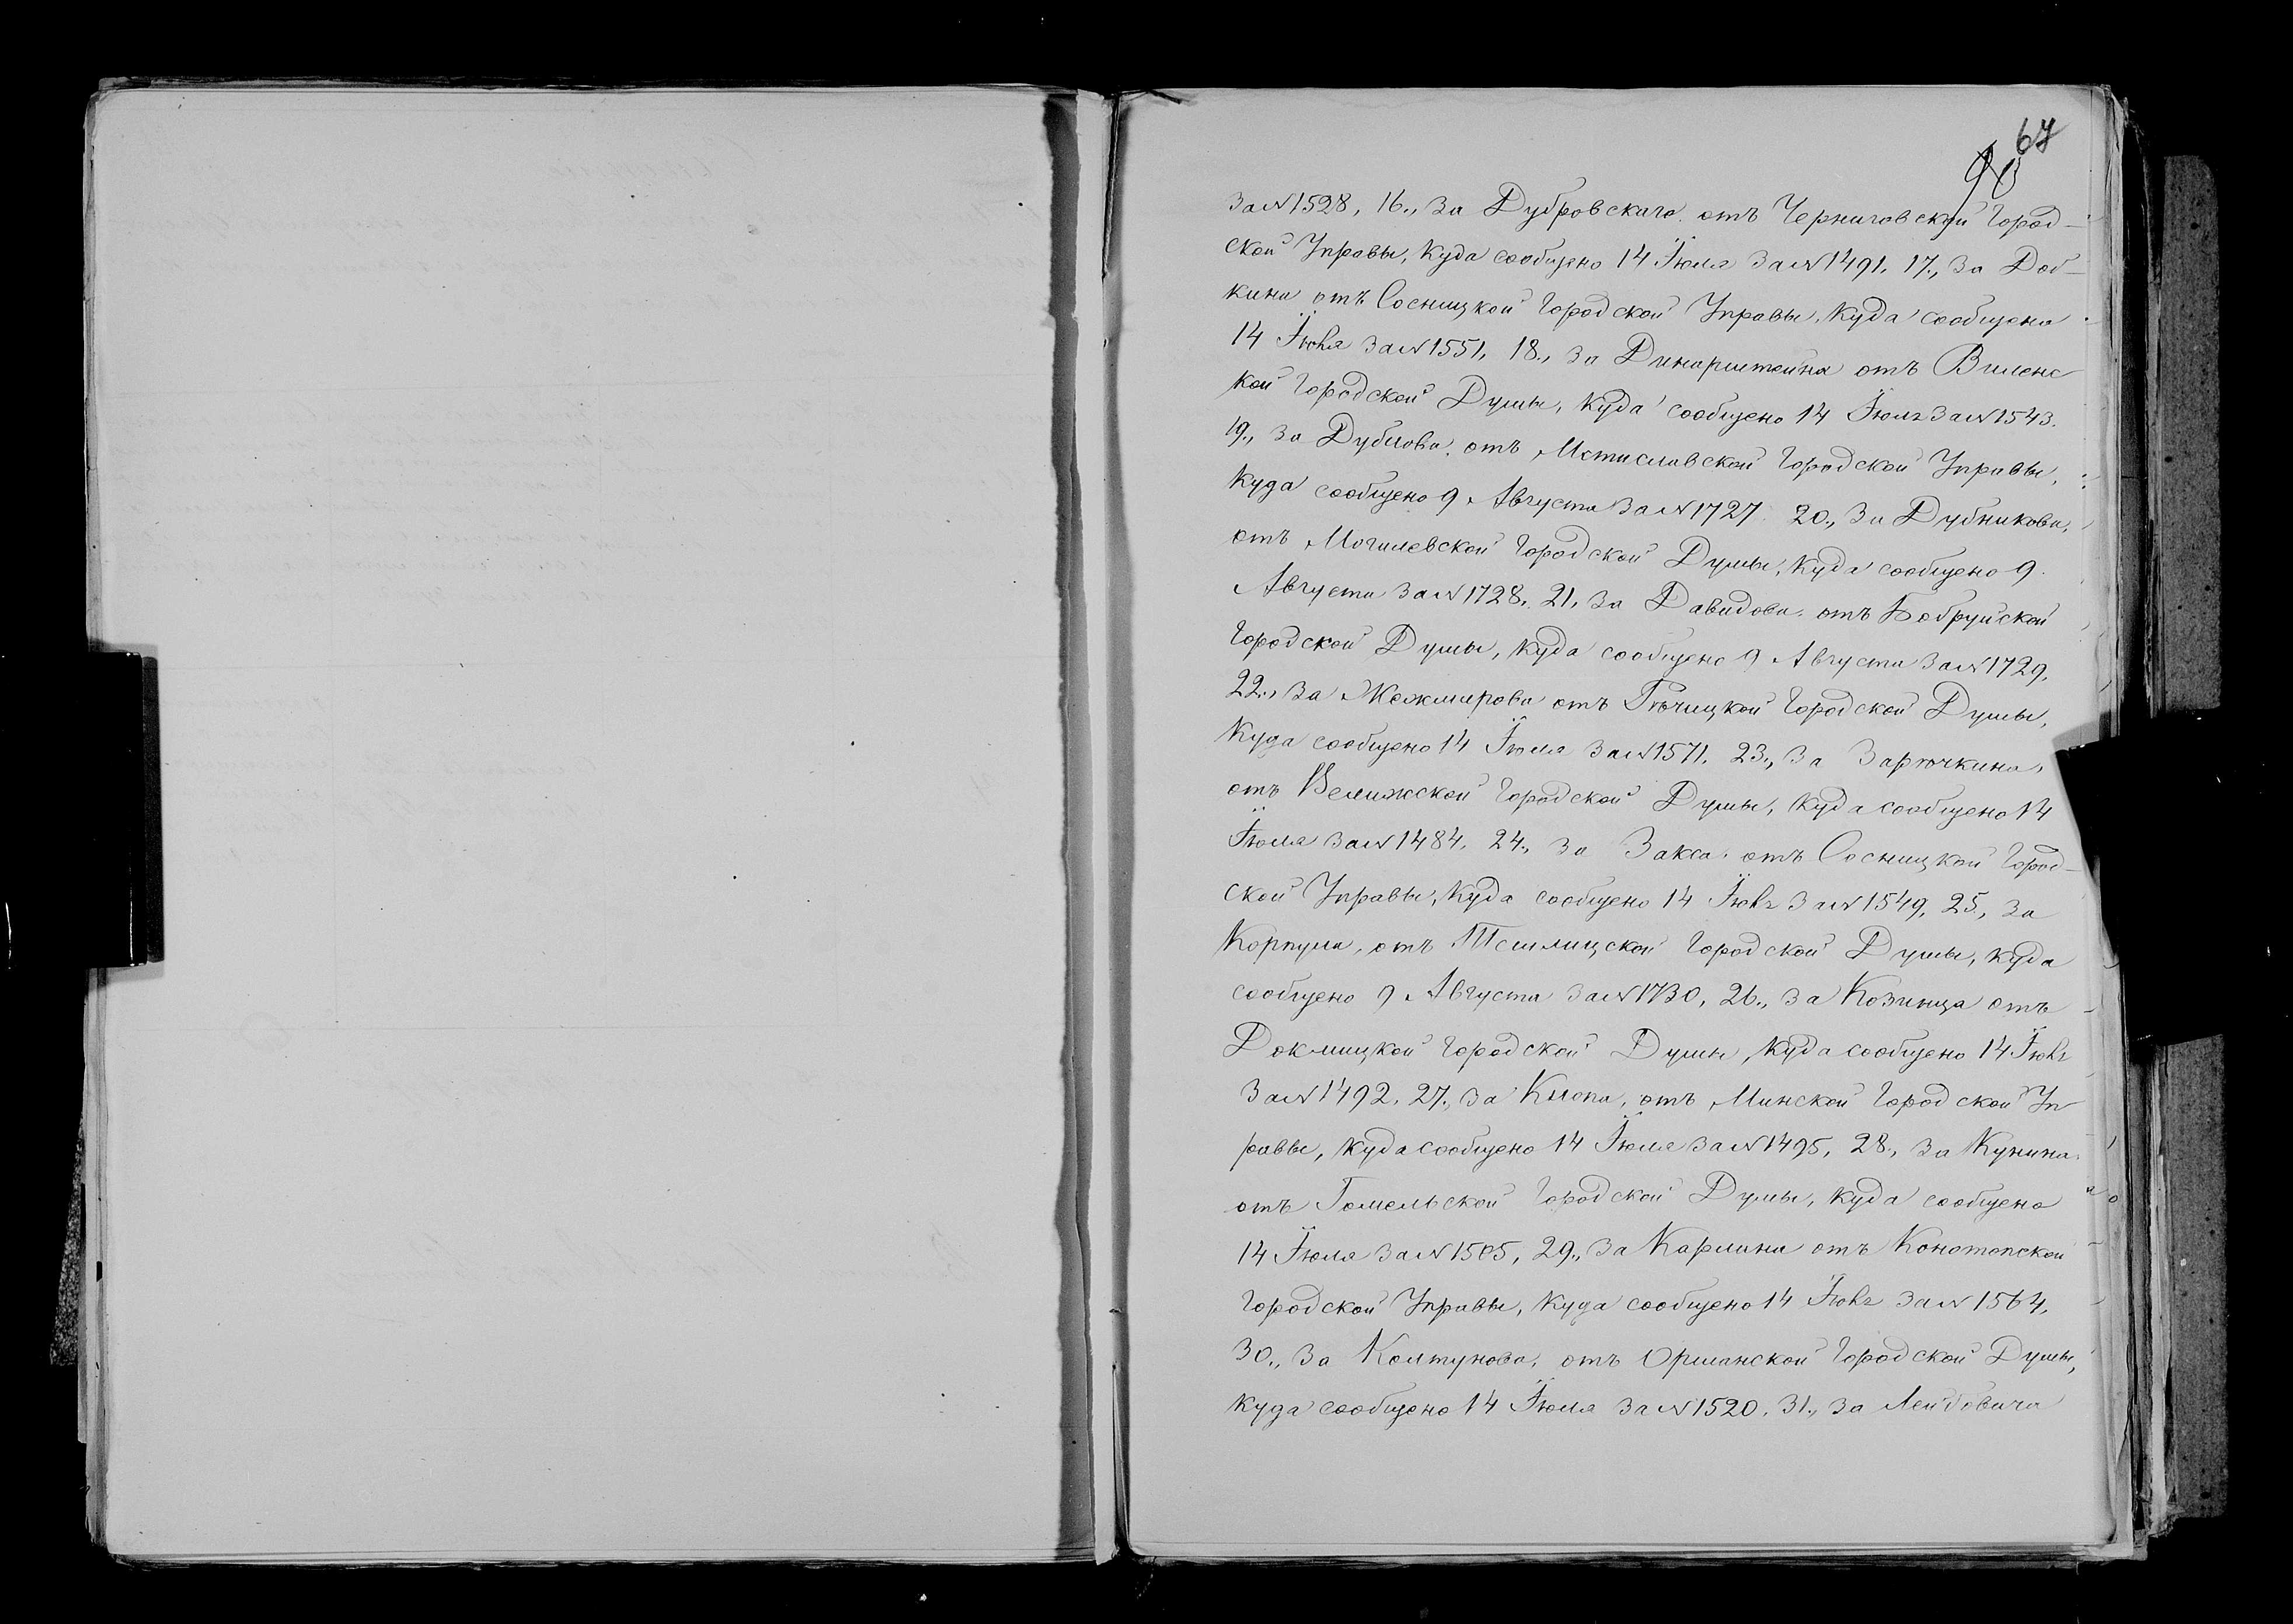 67
за № 1528, 16., за Дубровскаго. отъ Черниговской Город-
ской Управы, куда сообщено 14 Іюля за № 1491. 17., за Доб-
кина отъ Сосницкой Городской Управы, куда сообщено
14 Іюля за № 1551, 18., за Динарштейна отъ Виленс
кой Городской Думы, куда сообщено 14 Іюля за № 1543.
19., за Дубнова. отъ Мстиславской Городской Управы,
куда сообщено 9 Августа за № 1727. 20., за Дубникова,
отъ Могилевской Городской Думы, куда сообщено 9
Августа за № 1728. 21, за Давидова. отъ Бобруйской
Городской Думы, куда сообщено 9 Августа за № 1729.
22., за Межмирова отъ Рѣчицкой Городской Думы,
куда сообщено 14 Іюля за № 1571. 23., за Зарючкина,
отъ Велижской Городской Думы, куда сообщено 14
Іюля за № 1484. 24., за Закса. отъ Сосницкой Город-
ской Управы, куда сообщено 14 Іюля за № 1549, 25., за
отъ Городской Думы, куда
сообщено 9 Августа за № 1730, 26., за Козинца отъ
Докшицкой Городской Думы, куда сообщено 14 Іюля
за № 1492. 27., за Клепа, отъ Минской Городской Уп
равы, куда сообщено 14 Іюля за № 1495, 28., за Кунина.
отъ Гомельской Городской Думы, куда сообщено
14 Іюля за № 1505, 29., за Карлина отъ Конотопской
Городской Управы, куда сообщено 14 Іюля за № 1564,
30., за Колтунова. отъ Оршанской Городской Думы,
куда сообщено 14 Іюля за № 1520. 31., за Лейбовича